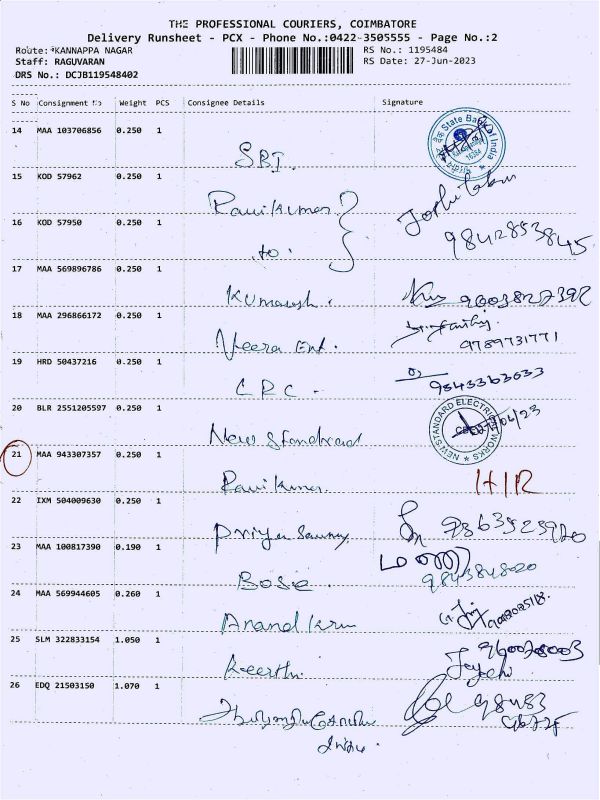 THE PROFESSIONAL COURIERS, COIMBATORE
Delivery Runsheet - PCX - Phone No.:0422-3505555 - Page No.:2
Route: KANNAPPA NAGAR
RS No.: 1195484
Staff: RAGUVARAN
RS Date: 27-Jun-2023
DRS No.: DCJB119548402
S No Consignment No Weight PCS Consignee Details Signature
14 MAA 103706856 0.250 1
SBI.
State Bank of India
15 KOD 57962 0.250 1
Ravikumar
16 KOD 57950 0.250 1
9842853845
to.
17 MAA 569896786 0.250 1
Kumaresh. 9003827392
18 MAA 296866172 0.250 1
Veera Ent. 9789731771
19 HRD 50437216 0.250 1
CRC. 9843363033
20 BLR 2551205597 0.250 1
New Standard
NEW STANDARD ELECTRICAL WORKS
21 MAA 943307357 0.250 1
Ravikumar H/R
22 IXM 504009630 0.250 1
Priya
23 MAA 100817390 0.190 1
Bose. 9843848020
24 MAA 569944605 0.260 1
Anand
25 SLM 322833154 1.050 1
Keerthi
26 EDQ 21503150 1.070 1